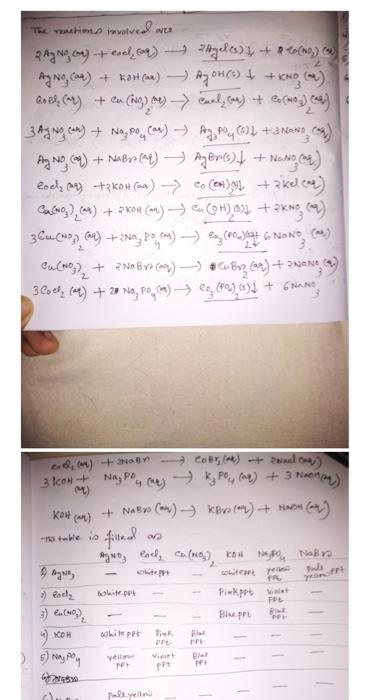 The reactions involved are
2AgNO₃(aq) + CoCl₂(aq) → 2AgCl(s)↓ + Co(NO₃)₂(aq)
AgNO₃(aq) + KOH(aq) → AgOH(s)↓ + KNO₃(aq)
CoCl₂(aq) + Cu(NO₃)₂(aq) → CuCl₂(aq) + Co(NO₃)₂(aq)
3AgNO₃(aq) + Na₃PO₄(aq) → Ag₃PO₄(s)↓ + 3NaNO₃(aq)
AgNO₃(aq) + NaBr(aq) → AgBr(s)↓ + NaNO₃(aq)
CoCl₂(aq) + 2KOH(aq) → Co(OH)₂(s)↓ + 2KCl(aq)
Cu(NO₃)₂(aq) + 2KOH(aq) → Cu(OH)₂(s)↓ + 2KNO₃(aq)
3Cu(NO₃)₂(aq) + 2Na₃PO₄(aq) → Cu₃(PO₄)₂(s)↓ + 6NaNO₃(aq)
Cu(NO₃)₂ + 2NaBr(aq) → CuBr₂(aq) + 2NaNO₃(aq)
3CoCl₂(aq) + 2Na₃PO₄(aq) → Co₃(PO₄)₂(s)↓ + 6NaNO₃
CoCl₂(aq) + 2NaBr → CoBr₂(aq) + 2NaCl(aq)
3KOH(aq) + Na₃PO₄(aq) → K₃PO₄(aq) + 3NaOH(aq)
KOH(aq) + NaBr(aq) → KBr(aq) + NaOH(aq)
The table is filled as
AgNO₃ CoCl₂ Cu(NO₃)₂ KOH Na₃PO₄ NaBr
1) AgNO₃ — white ppt — white ppt yellow ppt pale yellow ppt
2) CoCl₂ white ppt — — Pink ppt Violet ppt —
3) Cu(NO₃)₂ — — — Blue ppt Blue ppt —
4) KOH white ppt Pink ppt Blue ppt — — —
5) Na₃PO₄ yellow ppt Violet ppt Blue ppt — — —
pale yellow